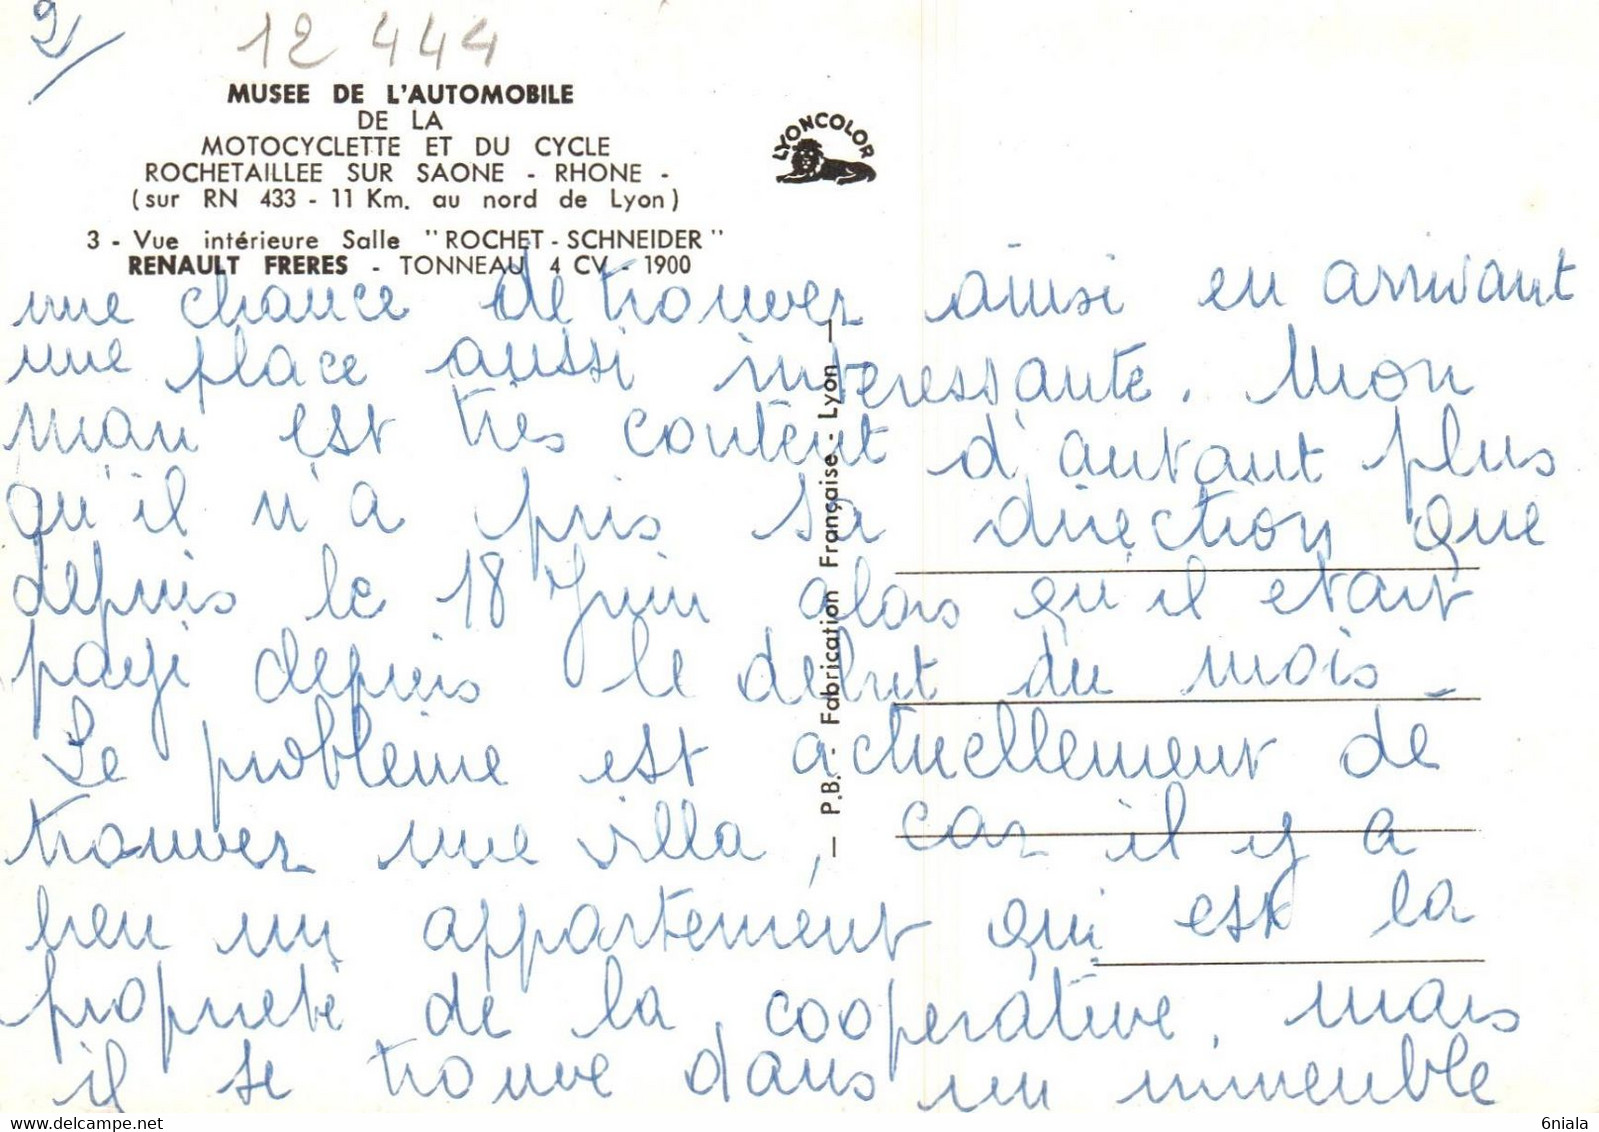 2/
12 444
MUSEE DE L'AUTOMOBILE
DE LA
MOTOCYCLETTE ET DU CYCLE
ROCHETAILLEE SUR SAONE - RHONE -
(sur RN 433 - 11 Km. au nord de Lyon)
3 - Vue intérieure Salle "ROCHET-SCHNEIDER"
RENAULT FRERES - TONNEAU 4 CV - 1900
LYONCOLOR
— P.B. - Fabrication Française - Lyon —
une chance de trouver ainsi en arrivant
une place aussi interessante. Mon
mari est très content d'autant plus
qu'il n'a pris sa direction que
depuis le 18 Juin alors qu'il etait
payé depuis le debut du mois.
Le problème est actuellement de
trouver une villa, car il y a
bien un appartement qui est la
propriété de la cooperative, mais
il se trouve dans un immeuble
delcampe.net
6niala